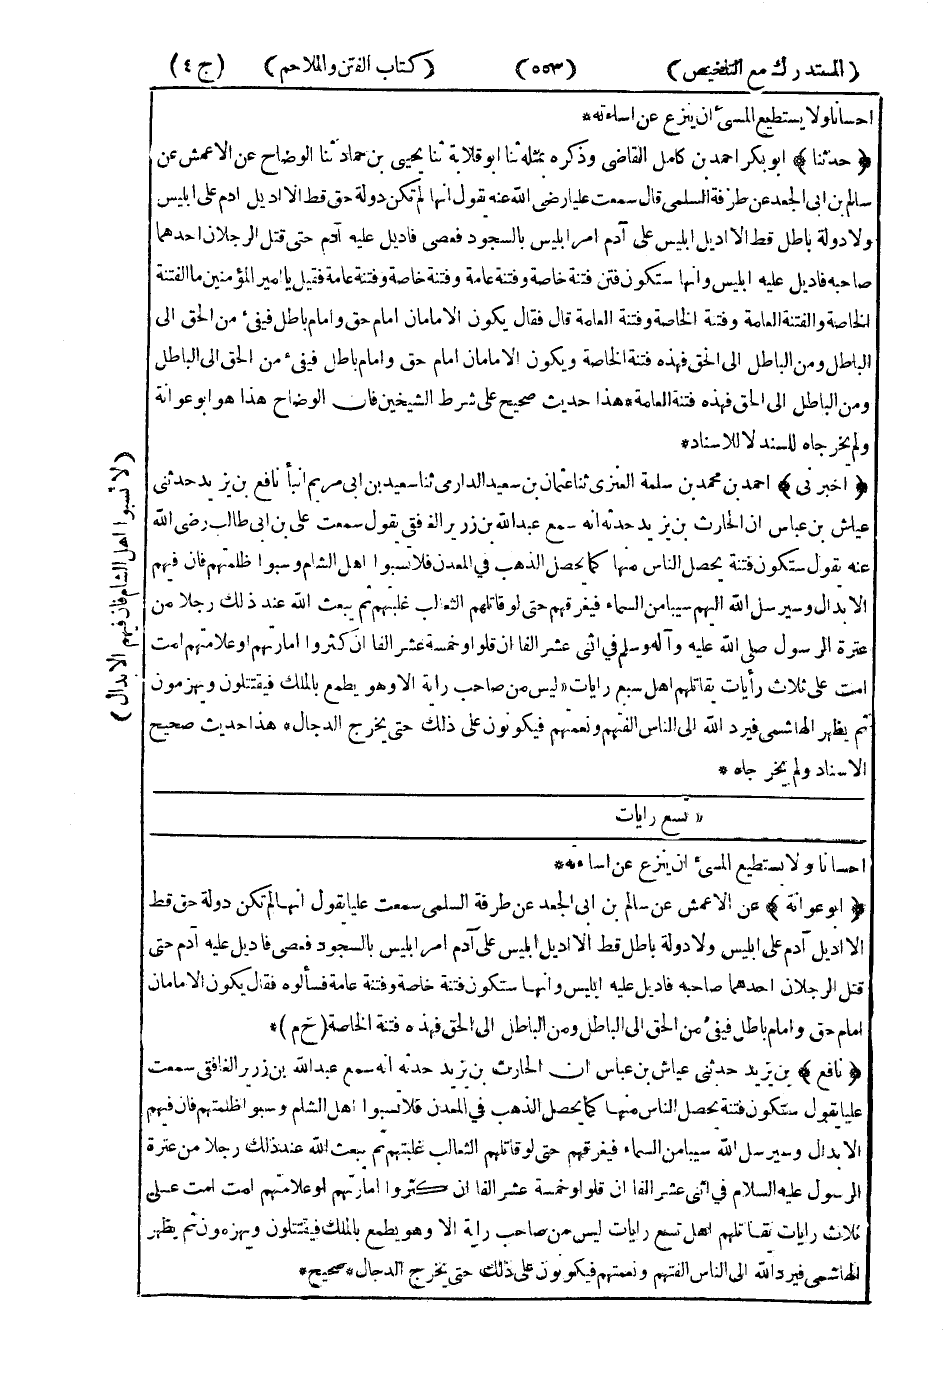 (المستدرك مع التلخيص) (٥٥٣) (كتاب الفتن والملاحم) (ج ٤)
احسانا ولا يستطيع المسئ ان ينزع عن اساءته*
﴿حدثنا﴾ ابو بكر احمد بن كامل القاضى وذكره بمثله ثنا ابو قلابة ثنا يحيى بن حماد ثنا الوضاح عن الاعمش عن
سالم بن ابى الجعد عن طرفة السلمى قال سمعت عليا رضى الله عنه يقول انها لم تكن دولة حق قط الا اديل ادم على ابليس
ولا دولة باطل قط الا اديل ابليس على آدم امر ابليس بالسجود فعصى فاديل عليه آدم حتى قتل الرجلان احدهما
صاحبه فاديل عليه ابليس وانها ستكون فتن فتنة خاصة وفتنة عامة وفتنة خاصة وفتنة عامة فقيل يا امير المؤمنين ما الفتنة
الخاصة والفتنة العامة وفتنة الخاصة وفتنة العامة قال فقال يكون الامامان امام حق وامام باطل فيفئ من الحق الى
الباطل ومن الباطل الى الحق فهذه فتنة الخاصة ويكون الامامان امام حق وامام باطل فيفئ من الحق الى الباطل
ومن الباطل الى الحق فهذه فتنة العامة*هذا حديث صحيح على شرط الشيخين فان الوضاح هذا هو ابو عوانة
ولم يخرجاه للسند لا للاسناد*
﴿اخبرنى﴾ احمد بن محمد بن سلمة العنزى ثنا عثمان بن سعيد الدارمى ثنا سعيد بن ابى مريم انبأ نافع بن يزيد حدثنى
عياش بن عباس ان الحارث بن يزيد حدثه انه سمع عبدالله بن زرير الغافقى يقول سمعت على بن ابى طالب رضى الله
عنه يقول ستكون فتنة يحصل الناس منها كما يحصل الذهب فى المعدن فلا تسبوا اهل الشام وسبوا ظلمتهم فان فيهم
الابدال وسيرسل الله اليهم سيبا من السماء فيغرقهم حتى لو قاتلهم الثعالب غلبتهم ثم يبعث الله عند ذلك رجلا من
عترة الرسول صلى الله عليه وآله وسلم فى اثنى عشر الفا ان قلوا وخمسة عشر الفا ان كثروا امارتهم او علامتهم امت
امت على ثلاث رأيات يقاتلهم اهل سبع رايات« ليس من صاحب راية الا وهو يطمع بالملك فيقتتلون ويهزمون
ثم يظهر الهاشمى فيرد الله الى الناس الفتهم ونعمتهم فيكونون على ذلك حتى يخرج الدجال* هذا حديث صحيح
الاسناد ولم يخرجاه *
(لا تسبوا اهل الشام فان فيهم الابدال)
« تسع رايات
احسانا ولا يستطيع المسئ ان ينزع عن اساءته*
﴿ابو عوانة﴾ عن الاعمش عن سالم بن ابى الجعد عن طرفة السلمى سمعت عليا يقول انها لم تكن دولة حق قط
الا اديل آدم على ابليس ولا دولة باطل قط الا اديل ابليس على آدم امر ابليس بالسجود فعصى فاديل عليه آدم حتى
قتل الرجلان احدهما صاحبه فاديل عليه ابليس وانها ستكون فتنة خاصة وفتنة عامة فسألوه فقال يكون الامامان
امام حق وامام باطل فيفئ من الحق الى الباطل ومن الباطل الى الحق فهذه فتنة الخاصة(خ م)*
﴿نافع﴾ بن يزيد حدثنى عياش بن عباس ان الحارث بن يزيد حدثه انه سمع عبدالله بن زرير الغافقى سمعت
عليا يقول ستكون فتنة يحصل الناس منها كما يحصل الذهب فى المعدن فلا تسبوا اهل الشام وسبوا ظلمتهم فان فيهم
الابدال وسيرسل الله سيبا من السماء فيغرقهم حتى لو قاتلهم الثعالب غلبتهم ثم يبعث الله عند ذلك رجلا من عترة
الرسول عليه السلام فى اثنى عشر الفا ان قلوا وخمسة عشر الفا ان كثروا امارتهم او علامتهم امت امت على
ثلاث رايات يقاتلهم اهل تسع رايات ليس من صاحب راية الا وهو يطمع بالملك فيقتتلون ويهزمون ثم يظهر
الهاشمى فيرد الله الى الناس الفتهم ونعمتهم فيكونون على ذلك حتى يخرج الدجال*صحيح*